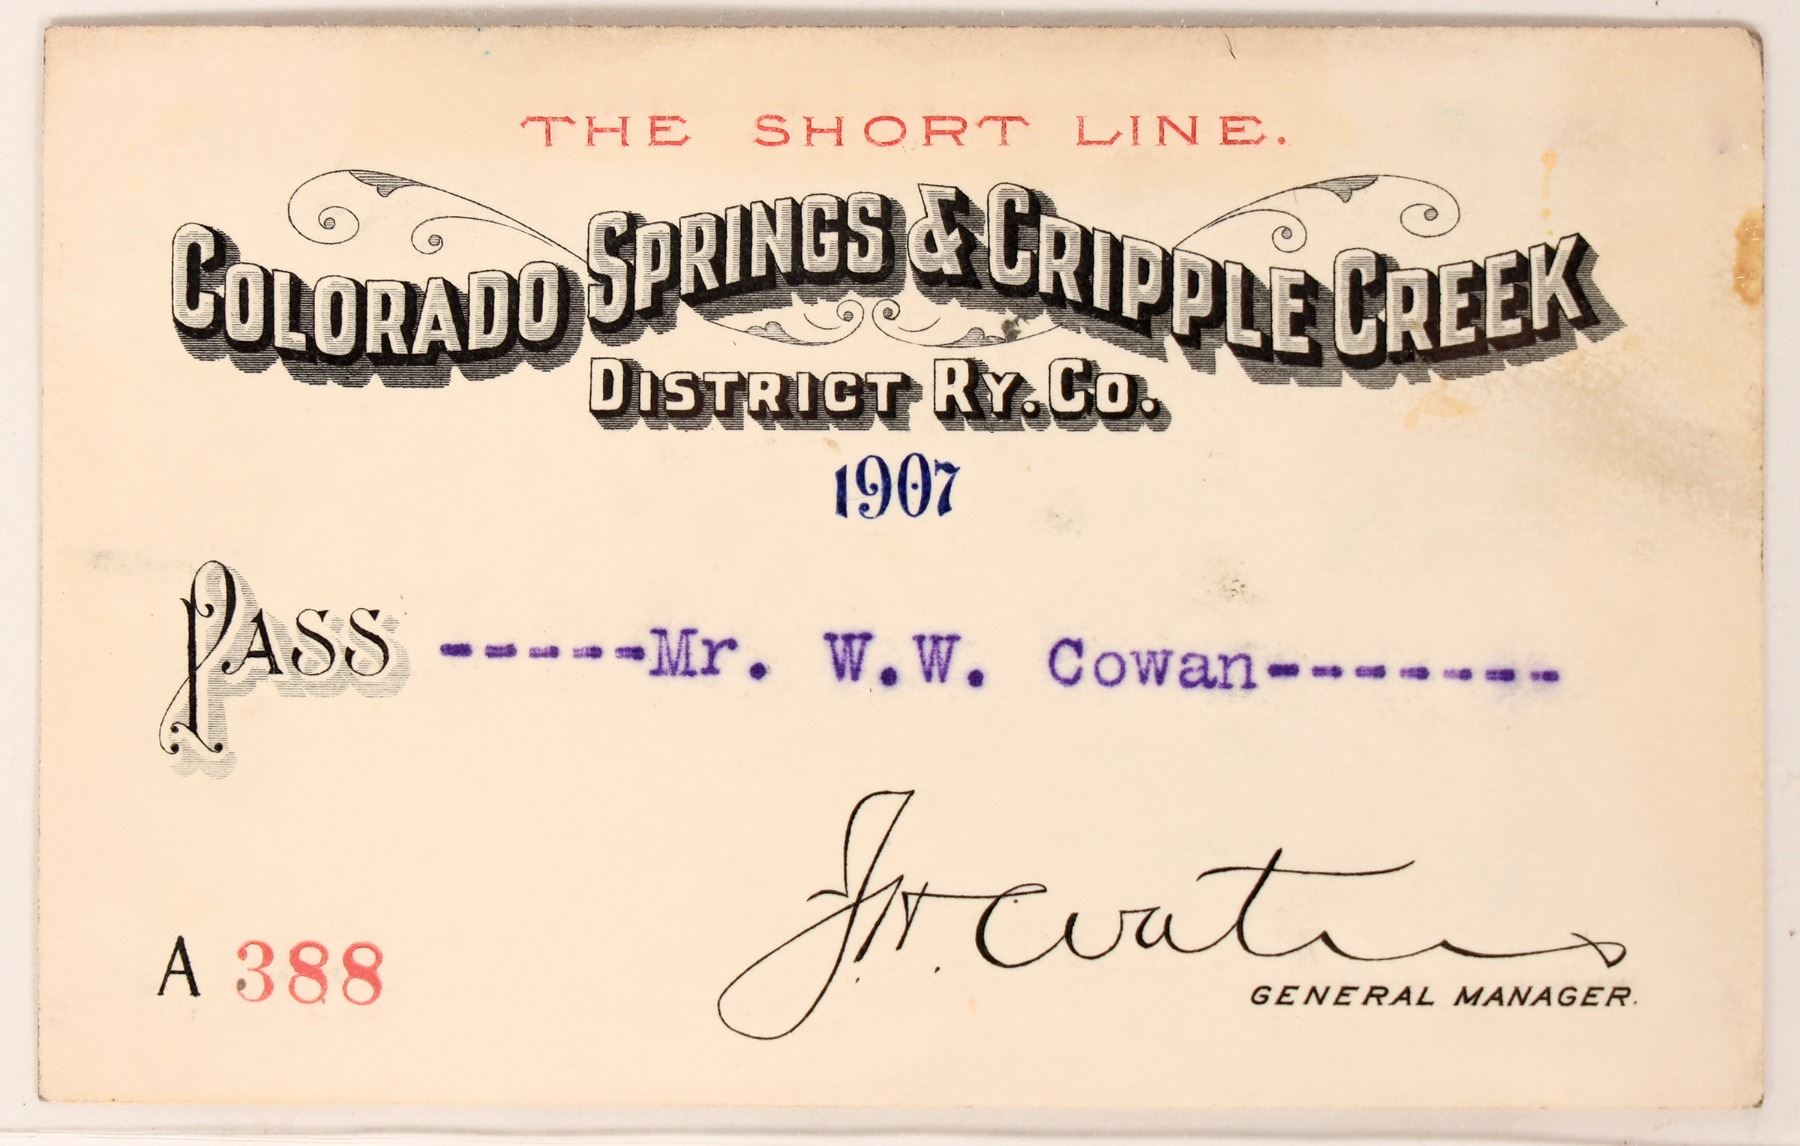 THE SHORT LINE.
COLORADO SPRINGS & CRIPPLE CREEK
DISTRICT RY. CO.
1907
PASS -----Mr. W.W. Cowan-------
J.H. Waters
GENERAL MANAGER.
A 388